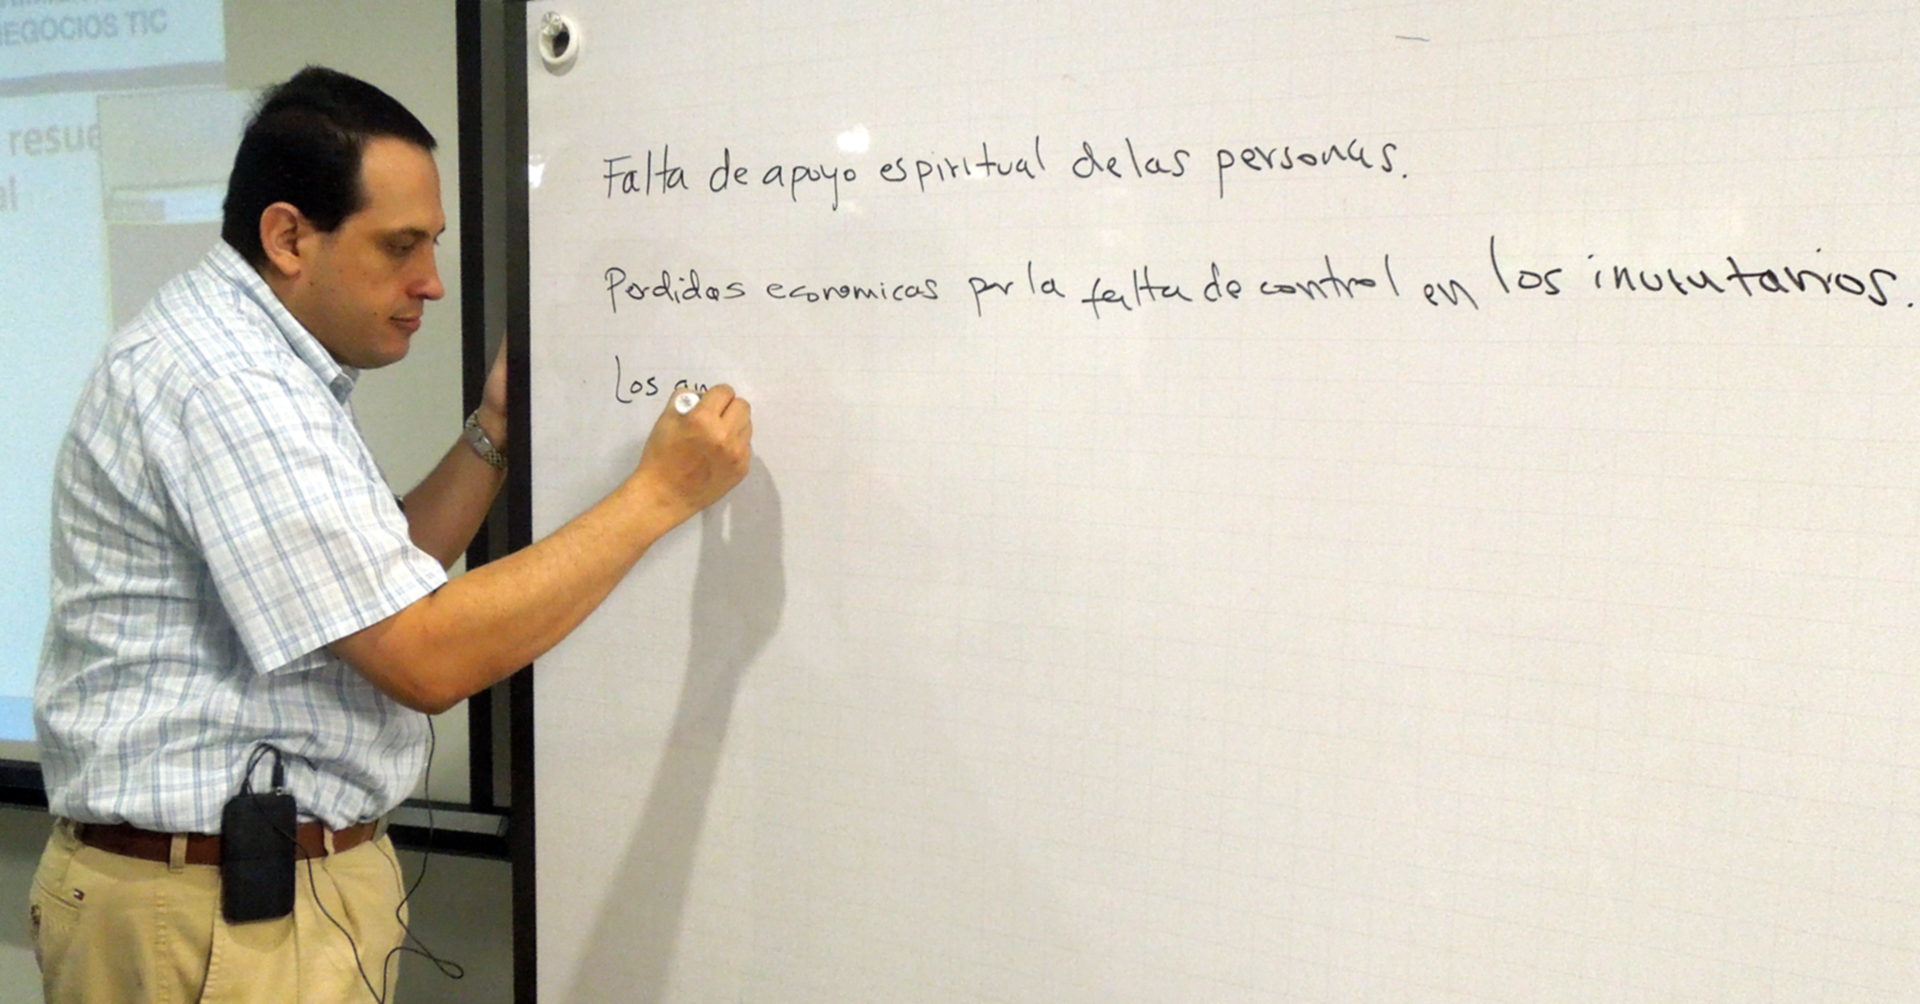 NEGOCIOS TIC
Falta de apoyo espiritual de las personas.
Perdidas economicas por la falta de control en los inventarios.
Los